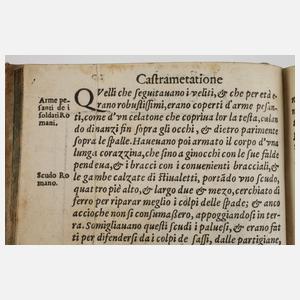 Castrametatione
Arme pe-
santi de i
soldati Ro
mani.
QVelli che seguitauano i veliti, & che per età e-
rano robustissimi, erano coperti d'arme pesan-
ti, come d'vn celatone che copriua lor la testa, calan
do dinanzi fin sopra gli occhi, & dietro parimente
sopra le spalle. Haueuano poi armato il corpo d'vna
lunga corazzina, che sino a ginocchi con le sue falde
pendeua, & i bracci con i conuenienti bracciali, &
le gambe calzate di stiualetti, portādo vno scudo,
Scudo Ro
mano.
quattro piè alto, & largo due & mezo, cerchiato di
ferro per riparar meglio i colpi delle spade; & anco
accioche non si consumassero, appoggiandosi in ter-
ra. Somigliauano questi scudi i paluesi, & erano fat
ti per difendersi da i colpi de sassi, dalle partigiane,